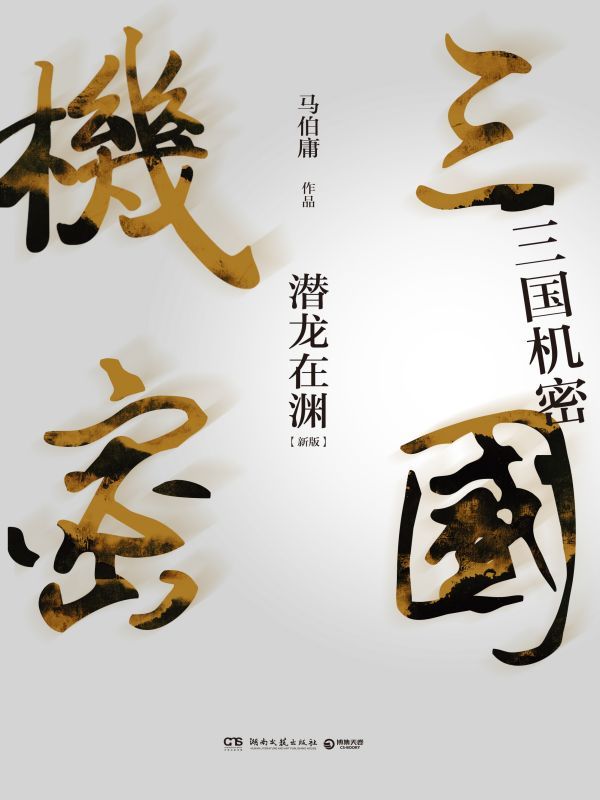 三國
機密
三国机密
马伯庸
作品
潜龙在渊
【新版】
湖南文艺出版社
HUNAN LITERATURE AND ART PUBLISHING HOUSE
博集天卷
CS-BOOKY